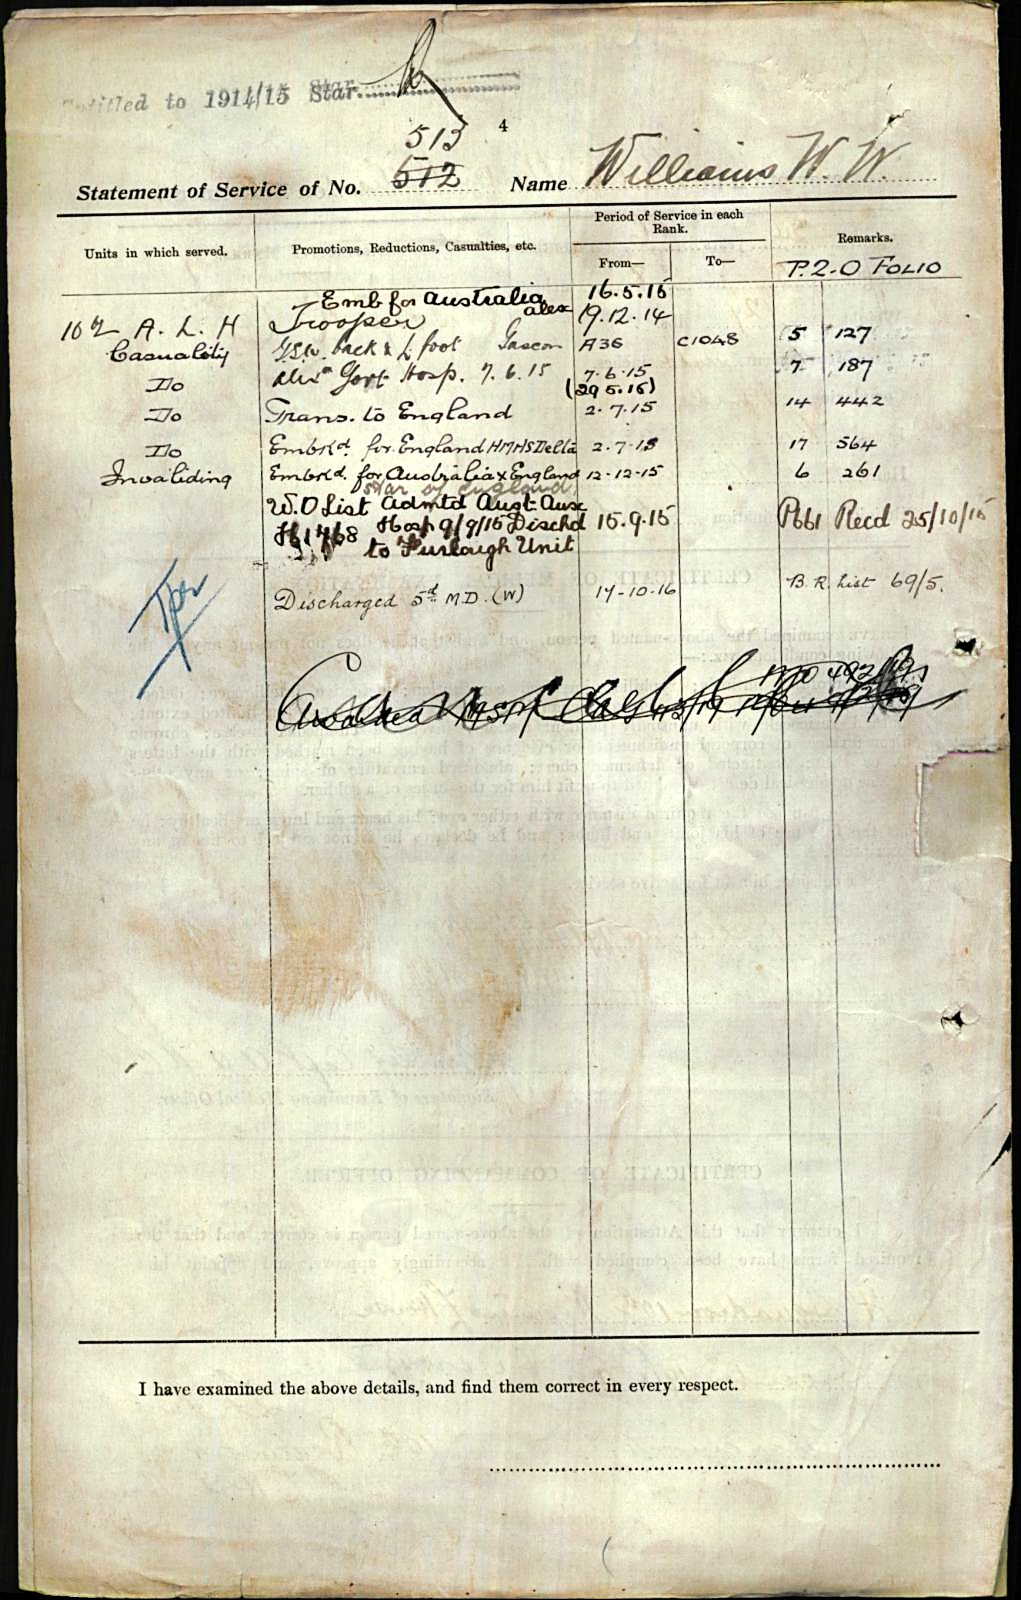 Entitled to 1914/15 Star
513
4
Statement of Service of No. 512 Name Williams W. W.
Units in which served. Promotions, Reductions, Casualties, etc. Period of Service in each Rank. Remarks.
From— To— P.2-O FOLIO
Emb for Australia 16.5.15
alex
10th A. L. H Trooper 19.12.14
Casuality GSW. back & L foot Gascon A36 C1048 5 127
Do Alexn Govt Hosp. 7.6.15 7.6.15 7 187
(29 5.15)
Do Trans. to England 2.7.15 14 442
Do Embkd. for England HMHS Delta 2.7.15 17 564
Invaliding Embkd. for Australia x England 12-12-15 6 261
Star of England
W.O List Admtd Aust Aux
H1768 Hosp 9/9/15 Dischd 15.9.15 Recd 25/10/15
to Furlough Unit
Discharged 5th M D. (W) 17-10-16 B.R. List 69/5.
I have examined the above details, and find them correct in every respect.